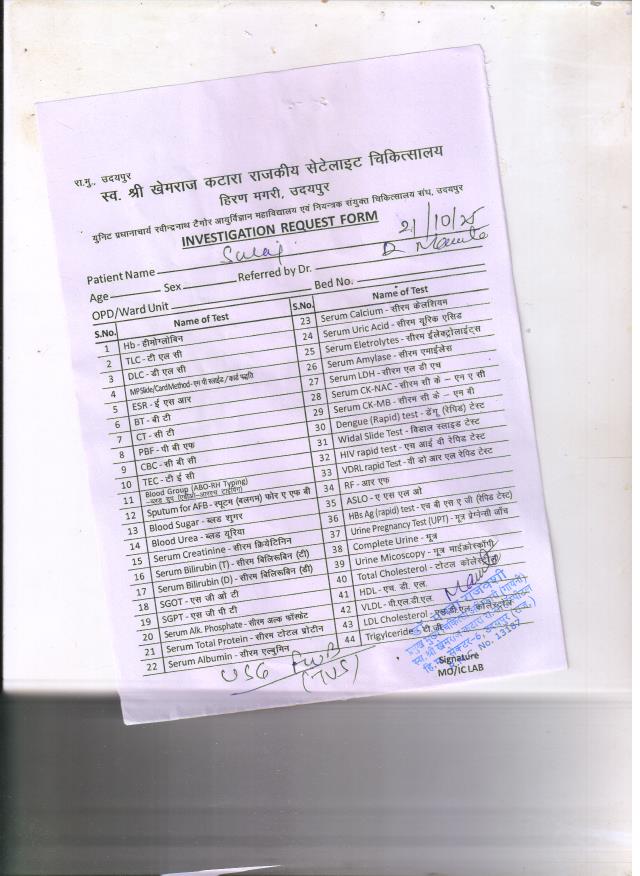 रा.मु., उदयपुर
स्व. श्री खेमराज कटारा राजकीय सेटेलाइट चिकित्सालय
हिरण मगरी, उदयपुर
युनिट प्रधानाचार्य रवीन्द्रनाथ टैगोर आयुर्विज्ञान महाविद्यालय एवं नियन्त्रक संयुक्त चिकित्सालय संघ, उदयपुर
INVESTIGATION REQUEST FORM
21/10/25
Patient Name
Age Sex Referred by Dr.
OPD/Ward Unit Bed No.
S.No. Name of Test
1 Hb - हीमोग्लोबिन
2 TLC - टी एल सी
3 DLC - डी एल सी
4 MP Slide/Card Method - एम पी स्लाईड / कार्ड पद्धति
5 ESR - ई एस आर
6 BT - बी टी
7 CT - सी टी
8 PBF - पी बी एफ
9 CBC - सी बी सी
10 TEC - टी ई सी
11 Blood Group (ABO-RH Typing)
12 Sputum for AFB - स्पूटम (बलगम) फोर ए एफ बी
13 Blood Sugar - ब्लड शुगर
14 Blood Urea - ब्लड यूरिया
15 Serum Creatinine - सीरम क्रियेटिनिन
16 Serum Bilirubin (T) - सीरम बिलिरूबिन (टी)
17 Serum Bilirubin (D) - सीरम बिलिरूबिन (डी)
18 SGOT - एस जी ओ टी
19 SGPT - एस जी पी टी
20 Serum Alk. Phosphate - सीरम अल्क फॉस्फेट
21 Serum Total Protein - सीरम टोटल प्रोटीन
22 Serum Albumin - सीरम एल्बुमिन
S.No. Name of Test
23 Serum Calcium - सीरम केलशियम
24 Serum Uric Acid - सीरम यूरिक एसिड
25 Serum Eletrolytes - सीरम ईलेक्ट्रोलाईट्स
26 Serum Amylase - सीरम एमाईलेस
27 Serum LDH - सीरम एल डी एच
28 Serum CK-NAC - सीरम सी के – एन ए सी
29 Serum CK-MB - सीरम सी के – एम बी
30 Dengue (Rapid) test - डेंगू (रेपिड) टेस्ट
31 Widal Slide Test - विडाल स्लाइड टेस्ट
32 HIV rapid test - एच आई वी रेपिड टेस्ट
33 VDRL rapid Test - वी डी आर एल रेपिड टेस्ट
34 RF - आर एफ
35 ASLO - ए एस एल ओ
36 HBs Ag (rapid) test - एच बी एस ए जी (रेपिड टेस्ट)
37 Urine Pregnancy Test (UPT) - मूत्र प्रेग्नेन्सी जाँच
38 Complete Urine - मूत्र
39 Urine Micoscopy - मूत्र माईक्रोस्कॉपी
40 Total Cholesterol - टोटल कोलेस्ट्रोल
41 HDL - एच. डी. एल.
42 VLDL - वी.एल.डी.एल.
43 LDL Cholesterol - एल.डी.एल. कोलेस्ट्रोल
44 Trigylceride - टी.जी.
USG
(TVS)
No. 13187
Signature
MO/IC LAB